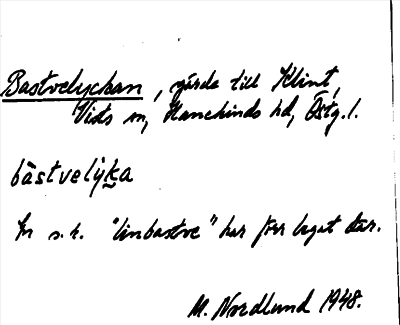 Bastvelyckan, gärde till Klint,
Vists sn, Hanekinds hd, Östg. l.
bàstvelyka
En s. k. "linbastve" har förr legat där.
M. Nordlund 1948.